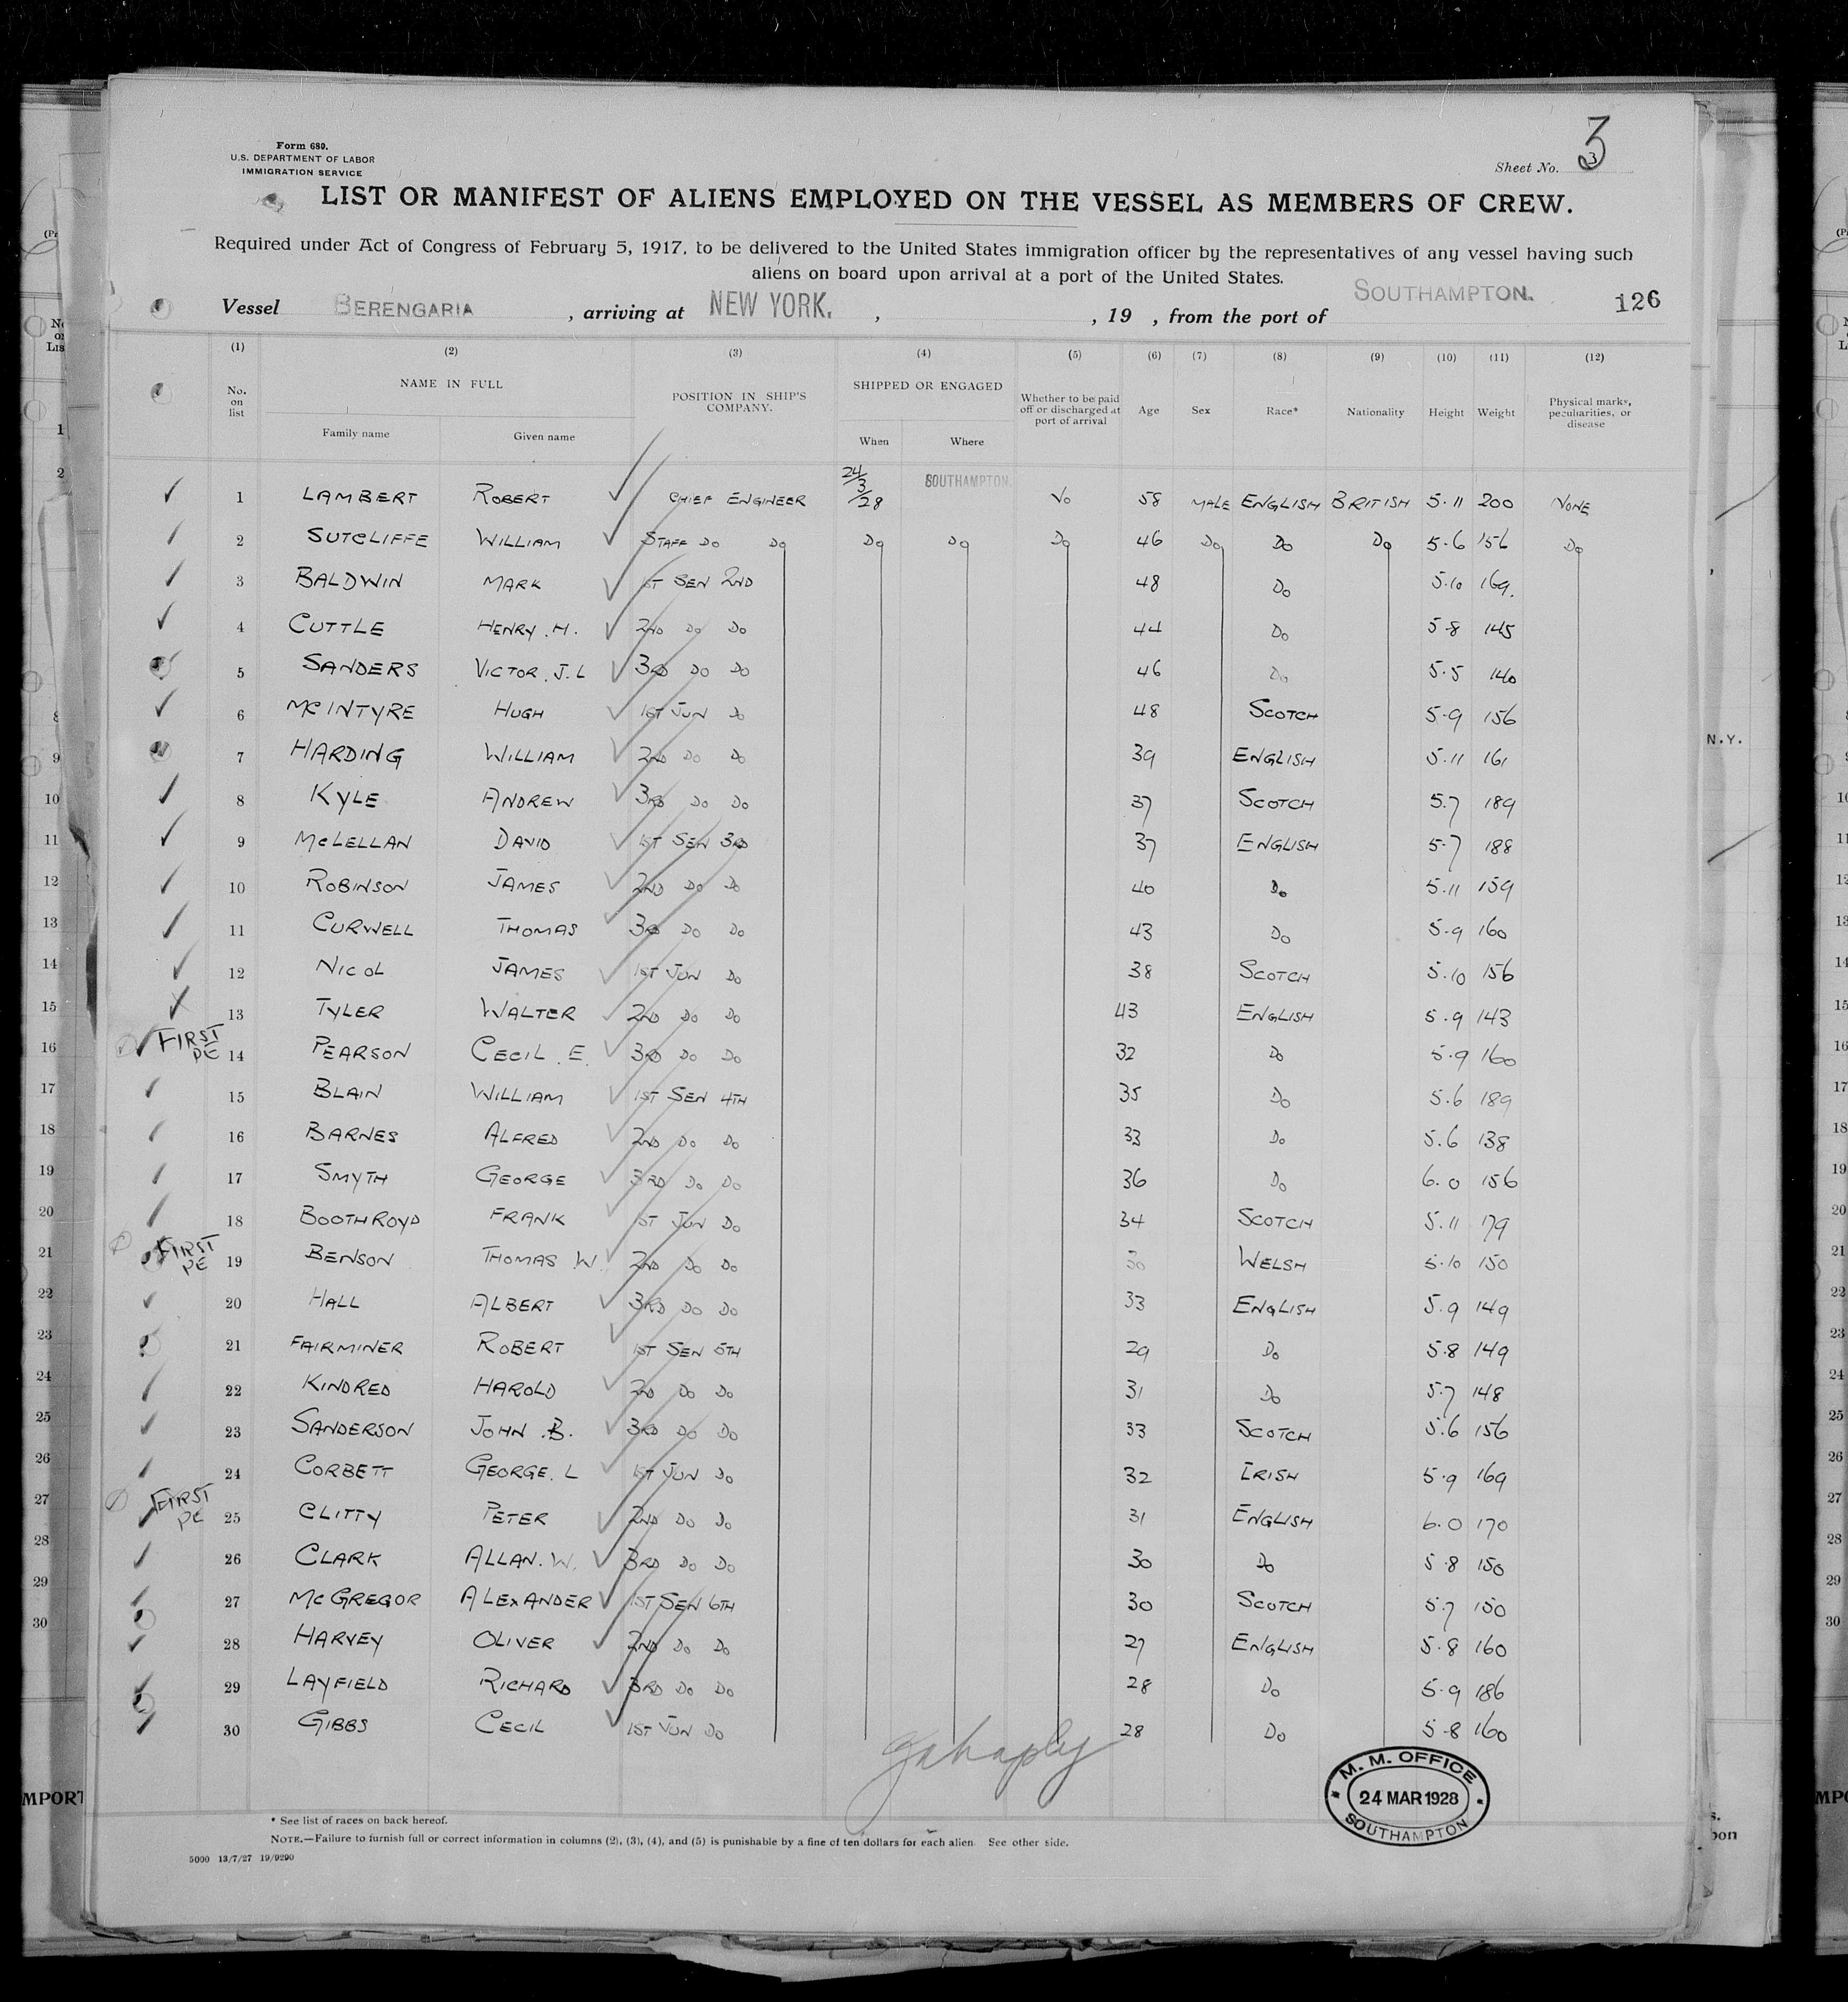 Form 680.
U.S. DEPARTMENT OF LABOR
IMMIGRATION SERVICE
Sheet No. 3
3
LIST OR MANIFEST OF ALIENS EMPLOYED ON THE VESSEL AS MEMBERS OF CREW.
Required under Act of Congress of February 5, 1917, to be delivered to the United States immigration officer by the representatives of any vessel having such
aliens on board upon arrival at a port of the United States.
Vessel BERENGARIA , arriving at NEW YORK. , , 19 , from the port of SOUTHAMPTON. 126
(1) (2) (3) (4) (5) (6) (7) (8) (9) (10) (11) (12)
No. on list NAME IN FULL Family name Given name POSITION IN SHIP'S COMPANY. SHIPPED OR ENGAGED When Where Whether to be paid off or discharged at port of arrival Age Sex Race* Nationality Height Weight Physical marks, peculiarities, or disease
1 LAMBERT ROBERT CHIEF ENGINEER 24/3/28 SOUTHAMPTON. No 58 MALE ENGLISH BRITISH 5.11 200 NONE
2 SUTCLIFFE WILLIAM STAFF DO DO DO DO DO 46 DO DO DO 5.6 156 DO
3 BALDWIN MARK 1ST SEN 2ND 48 DO 5.10 169.
4 CUTTLE HENRY.H. 2ND DO DO 44 DO 5.8 145
5 SANDERS VICTOR.J.L 3RD DO DO 46 DO 5.5 140
6 MCINTYRE HUGH 1ST JUN DO 48 SCOTCH 5.9 156
7 HARDING WILLIAM 2ND DO DO 39 ENGLISH 5.11 161
8 KYLE ANDREW 3RD DO DO 37 SCOTCH 5.7 189
9 MCLELLAN DAVID 1ST SEN 3RD 37 ENGLISH 5.7 188
10 ROBINSON JAMES 2ND DO DO 40 DO 5.11 159
11 CURWELL THOMAS 3RD DO DO 43 DO 5.9 160
12 NICOL JAMES 1ST JUN DO 38 SCOTCH 5.10 156
13 TYLER WALTER 2ND DO DO 43 ENGLISH 5.9 143
FIRST PE 14 PEARSON CECIL.E. 3RD DO DO 32 DO 5.9 160
15 BLAIN WILLIAM 1ST SEN 4TH 35 DO 5.6 189
16 BARNES ALFRED 2ND DO DO 33 DO 5.6 138
17 SMYTH GEORGE 3RD DO DO 36 DO 6.0 156
18 BOOTHROYD FRANK 1ST JUN DO 34 SCOTCH 5.11 179
FIRST PE 19 BENSON THOMAS W. 2ND DO DO 30 WELSH 5.10 150
20 HALL ALBERT 3RD DO DO 33 ENGLISH 5.9 149
21 FAIRMINER ROBERT 1ST SEN 5TH 29 DO 5.8 149
22 KINDRED HAROLD 2ND DO DO 31 DO 5.7 148
23 SANDERSON JOHN.B. 3RD DO DO 33 SCOTCH 5.6 156
24 CORBETT GEORGE.L 1ST JUN DO 32 IRISH 5.9 169
FIRST PE 25 CLITTY PETER 2ND DO DO 31 ENGLISH 6.0 170
26 CLARK ALLAN.W. 3RD DO DO 30 DO 5.8 150
27 MCGREGOR ALEXANDER 1ST SEN 6TH 30 SCOTCH 5.7 150
28 HARVEY OLIVER 2ND DO DO 27 ENGLISH 5.8 160
29 LAYFIELD RICHARD 3RD DO DO 28 DO 5.9 186
30 GIBBS CECIL 1ST JUN DO 28 DO 5.8 160
M. M. OFFICE
24 MAR 1928
SOUTHAMPTON
* See list of races on back hereof.
NOTE.—Failure to furnish full or correct information in columns (2), (3), (4), and (5) is punishable by a fine of ten dollars for each alien. See other side.
5000 13/7/27 19/9290
N.Y.